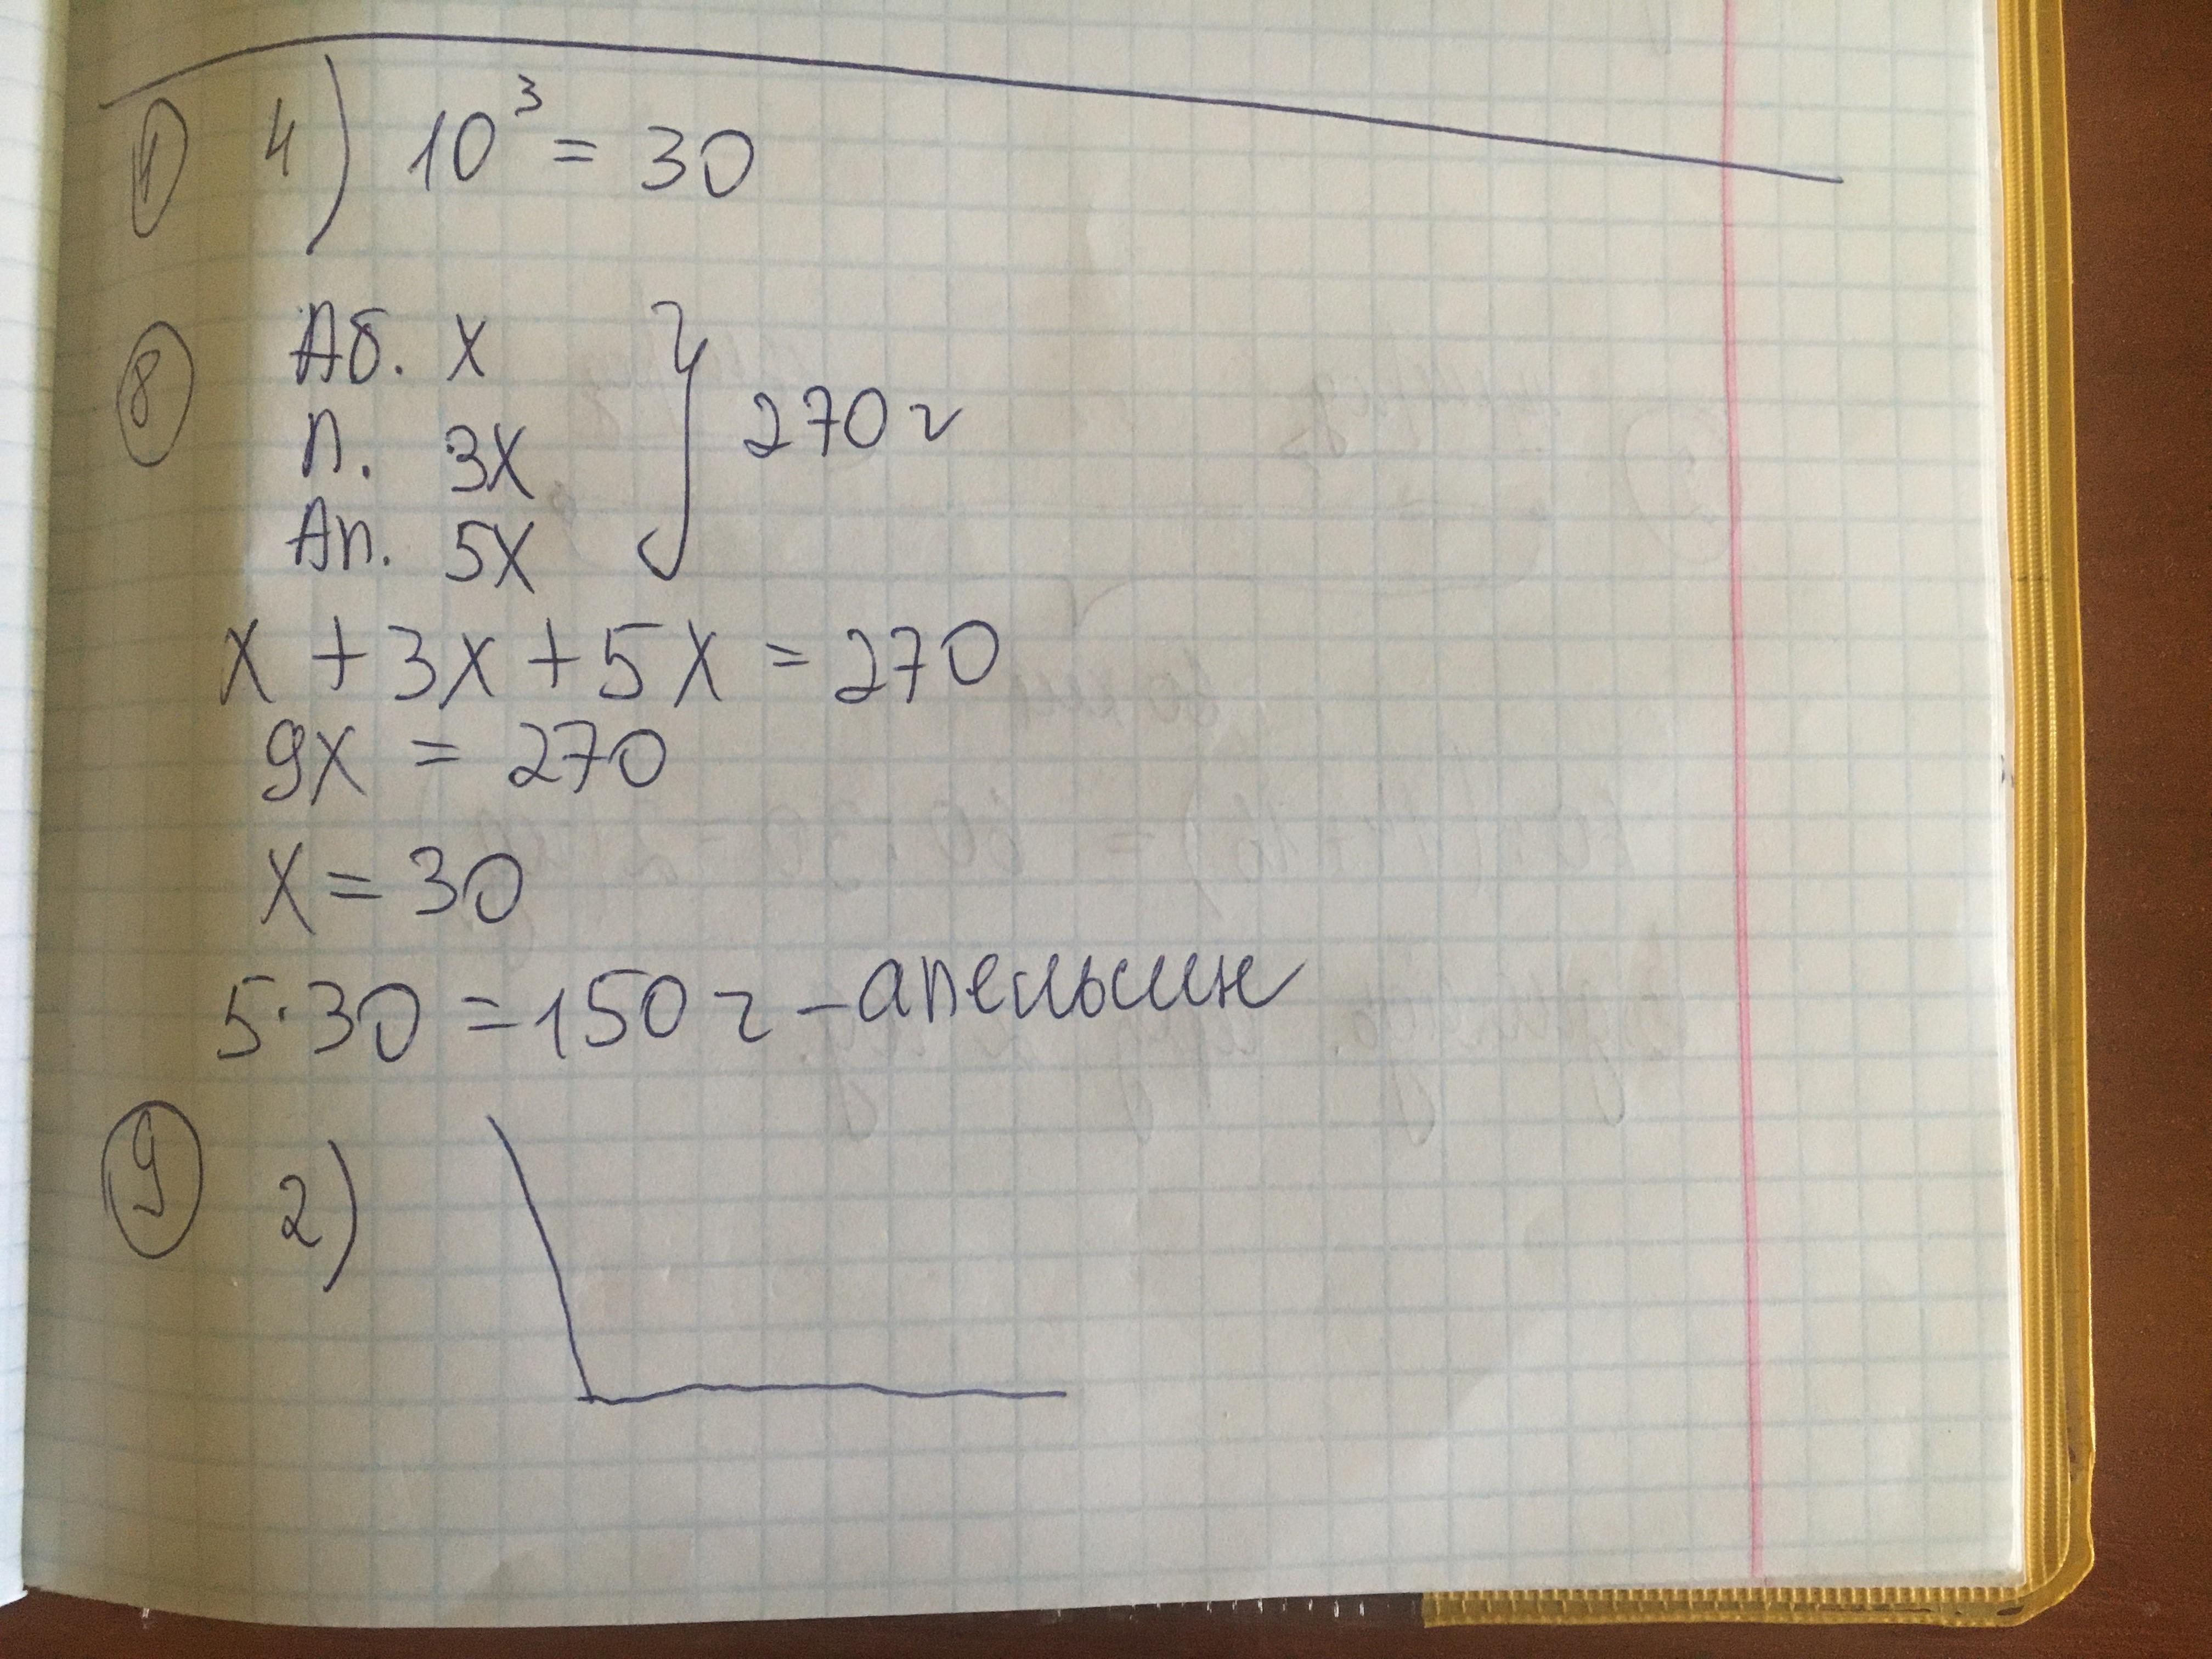 1 4) 10³ = 30
8 Аб. x
п. 3x
Ап. 5x
270 г
x + 3x + 5x = 270
9x = 270
x = 30
5·30 = 150 г – апельсин
9 2)